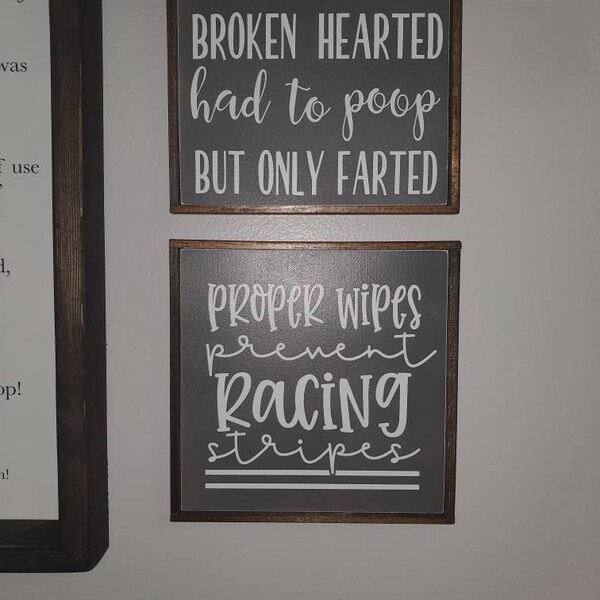 was
use
BROKEN HEARTED
had to poop
BUT ONLY FARTED
PROPER WIPES
prevent
RACING
stripes